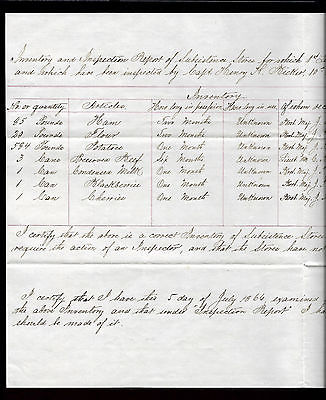 Inventory and Inspection Report of Subsistence Stores for which 1st
and which have been inspected by Capt Henry H. 10"
Inventory
No. or quantity Articles How long in possession How long in use. Of whom
95 Pounds Ham Two Months Unknown
20 Pounds Flour Two Months Unknown
584 Pounds Potatoes One Month Unknown
3 Cans Beef Six Months Unknown
1 Can Condensed Milk One Month Unknown
1 Can Blackberries One Month Unknown
1 Can Cherries One Month Unknown
I certify that the above is a correct Inventory of Subsistence Stores
require the action of an Inspector, and that the Stores have not
I certify that I have this 5 day of July 1864, examined
the above Inventory and that under "Inspection Report" I ha
should be made of it.